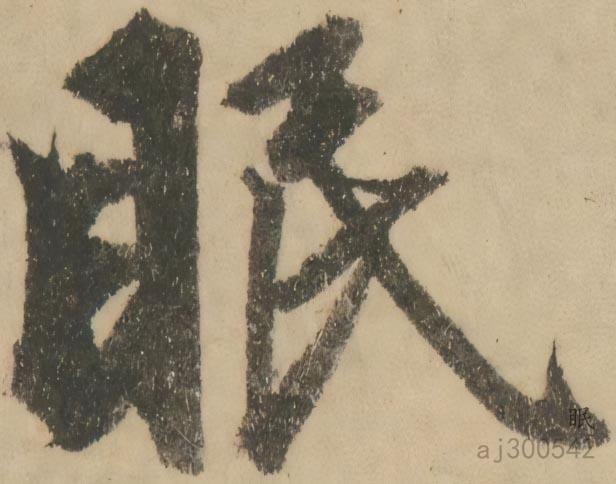 眠
眠
aj300542